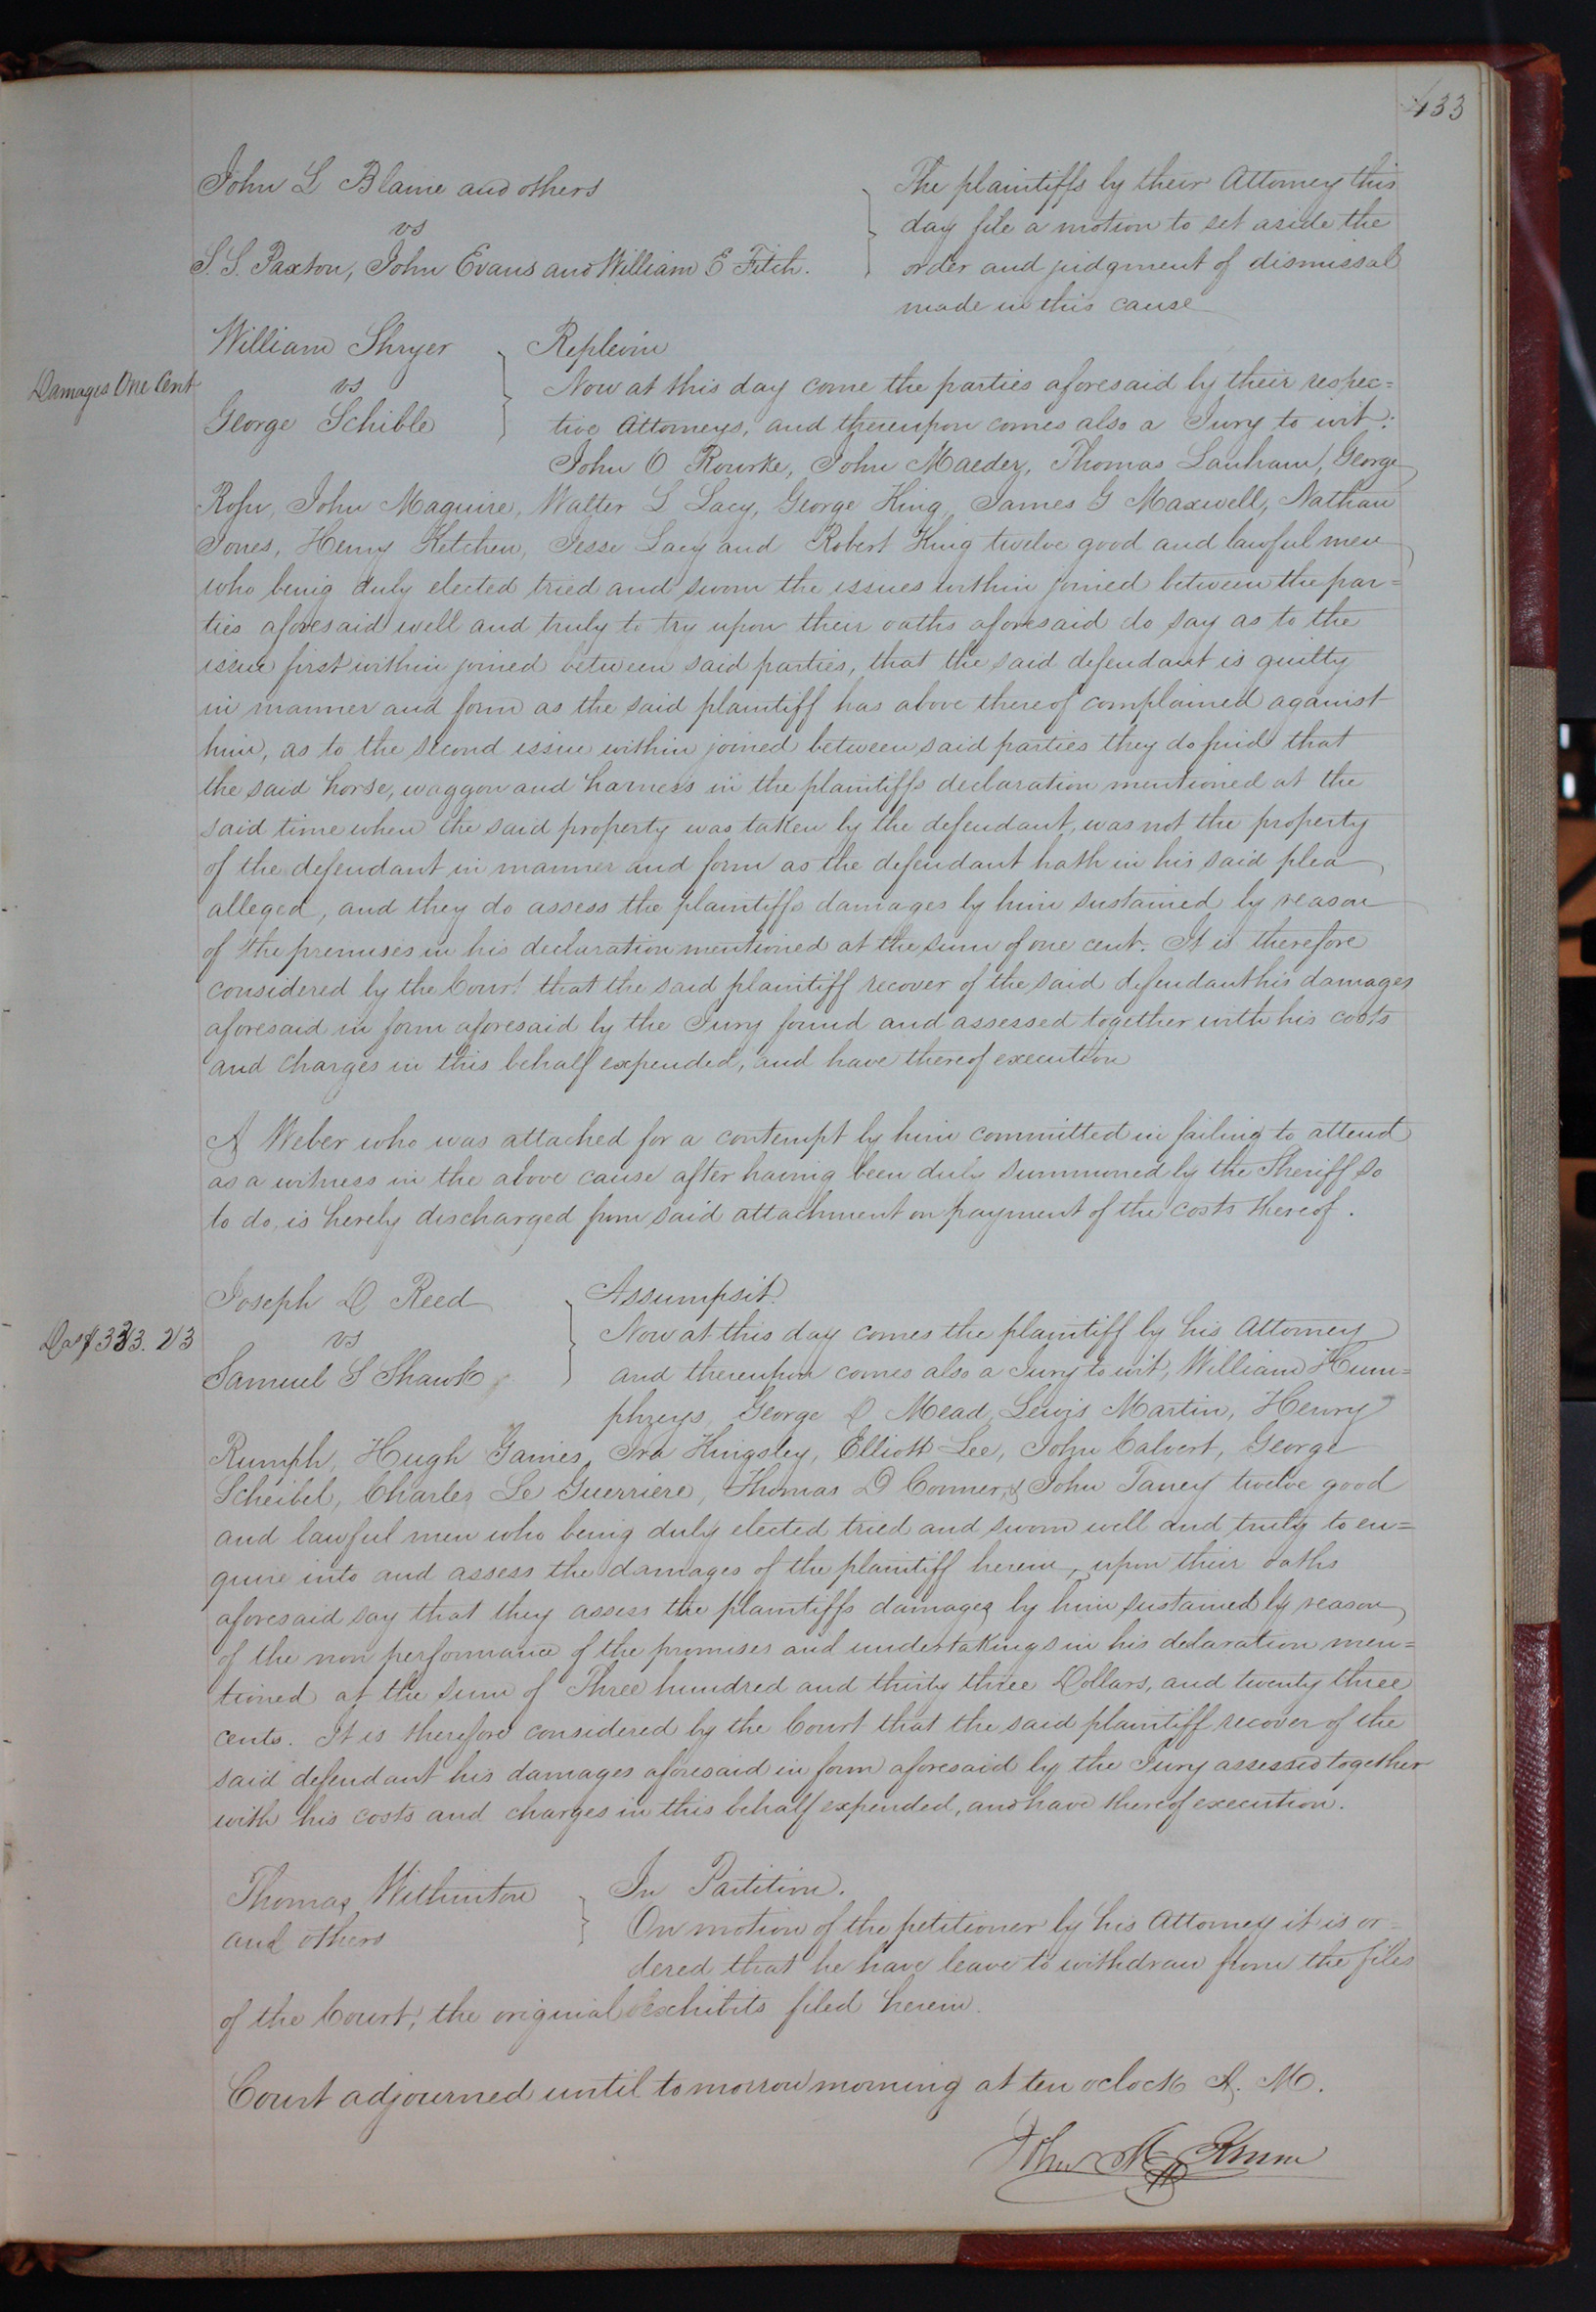 433
John L Blaine and others
vs
S. S. Paxton, John Evans and William E Fitch.
The plaintiffs by their Attorney this
day file a motion to set aside the
order and judgment of dismissal
made in this cause
William Shryer
vs
George Schible
Damages One Cent
Replevin
Now at this day come the parties aforesaid by their respec=
tive Attorneys, and thereupon comes also a Jury to wit:
John O Rourke, John Maedey, Thomas Lanham, George
John Maguire, Walter L Lacy, George King, James G Maxwell, Nathan
Jones, Henry Ketchen, Jesse Lacy and Robert King twelve good and lawful men
who being duly elected tried and sworn the issues within joined between the par=
ties aforesaid well and truly to try upon their oaths aforesaid do say as to the
issue first within joined between said parties, that the said defendant is guilty
in manner and form as the said plaintiff has above thereof complained against
him, as to the second issue within joined between said parties they do find that
the said horse, waggon and harness in the plaintiffs declaration mentioned at the
said time when the said property was taken by the defendant, was not the property
of the defendant in manner and form as the defendant hath in his said plea
alleged, and they do assess the plaintiffs damages by him sustained by reason
of the premises in his declaration mentioned at the sum of one cent. It is therefore
considered by the Court that the said plaintiff recover of the said defendant his damages
aforesaid in form aforesaid by the Jury found and assessed together with his costs
and charges in this behalf expended, and have thereof execution
A Weber who was attached for a contempt by him committed in failing to attend
as a witness in the above cause after having been duly summoned by the Sheriff so
to do, is hereby discharged from said attachment on payment of the costs thereof.
Joseph D Reed
vs
Samuel S Shawk
Das $333.23
Assumpsit.
Now at this day comes the plaintiff by his Attorney
and thereupon comes also a Jury to wit, William Hum=
phreys, George D Mead, Lewis Martin, Henry
Rumph, Hugh Gaines, Ira Kingsley, Elliott Lee, John Calvert, George
Scheibel, Charles Le Guerriere, Thomas D Conner, & John Taney twelve good
and lawful men who being duly elected tried and sworn well and truly to en=
quire into and assess the damages of the plaintiff herein, upon their oaths
aforesaid say that they assess the plaintiffs damages by him sustained by reason
of the non performance of the promises and undertakings in his declaration men=
tioned at the sum of Three hundred and thirty three Dollars, and twenty three
cents. It is therefore considered by the Court that the said plaintiff recover of the
said defendant his damages aforesaid in form aforesaid by the Jury assessed together
with his costs and charges in this behalf expended, and have thereof execution.
Thomas Withinton
and others
In Partition.
On motion of the petitioner by his Attorney it is or=
dered that he have leave to withdraw from the files
of the Court, the original exhibits filed herein.
Court adjourned until tomorrow morning at ten oclock A. M.
John M Krum